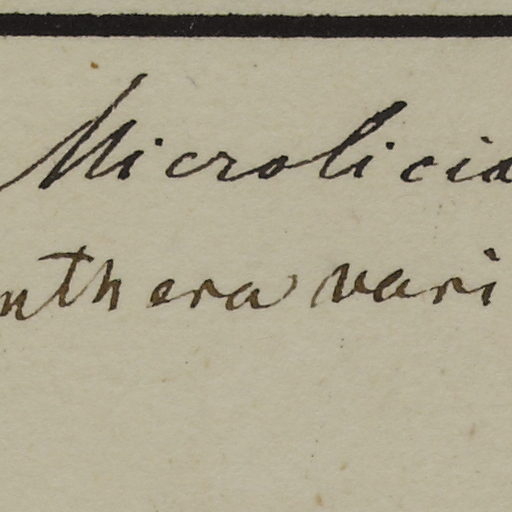 Microlicia
nthera vari